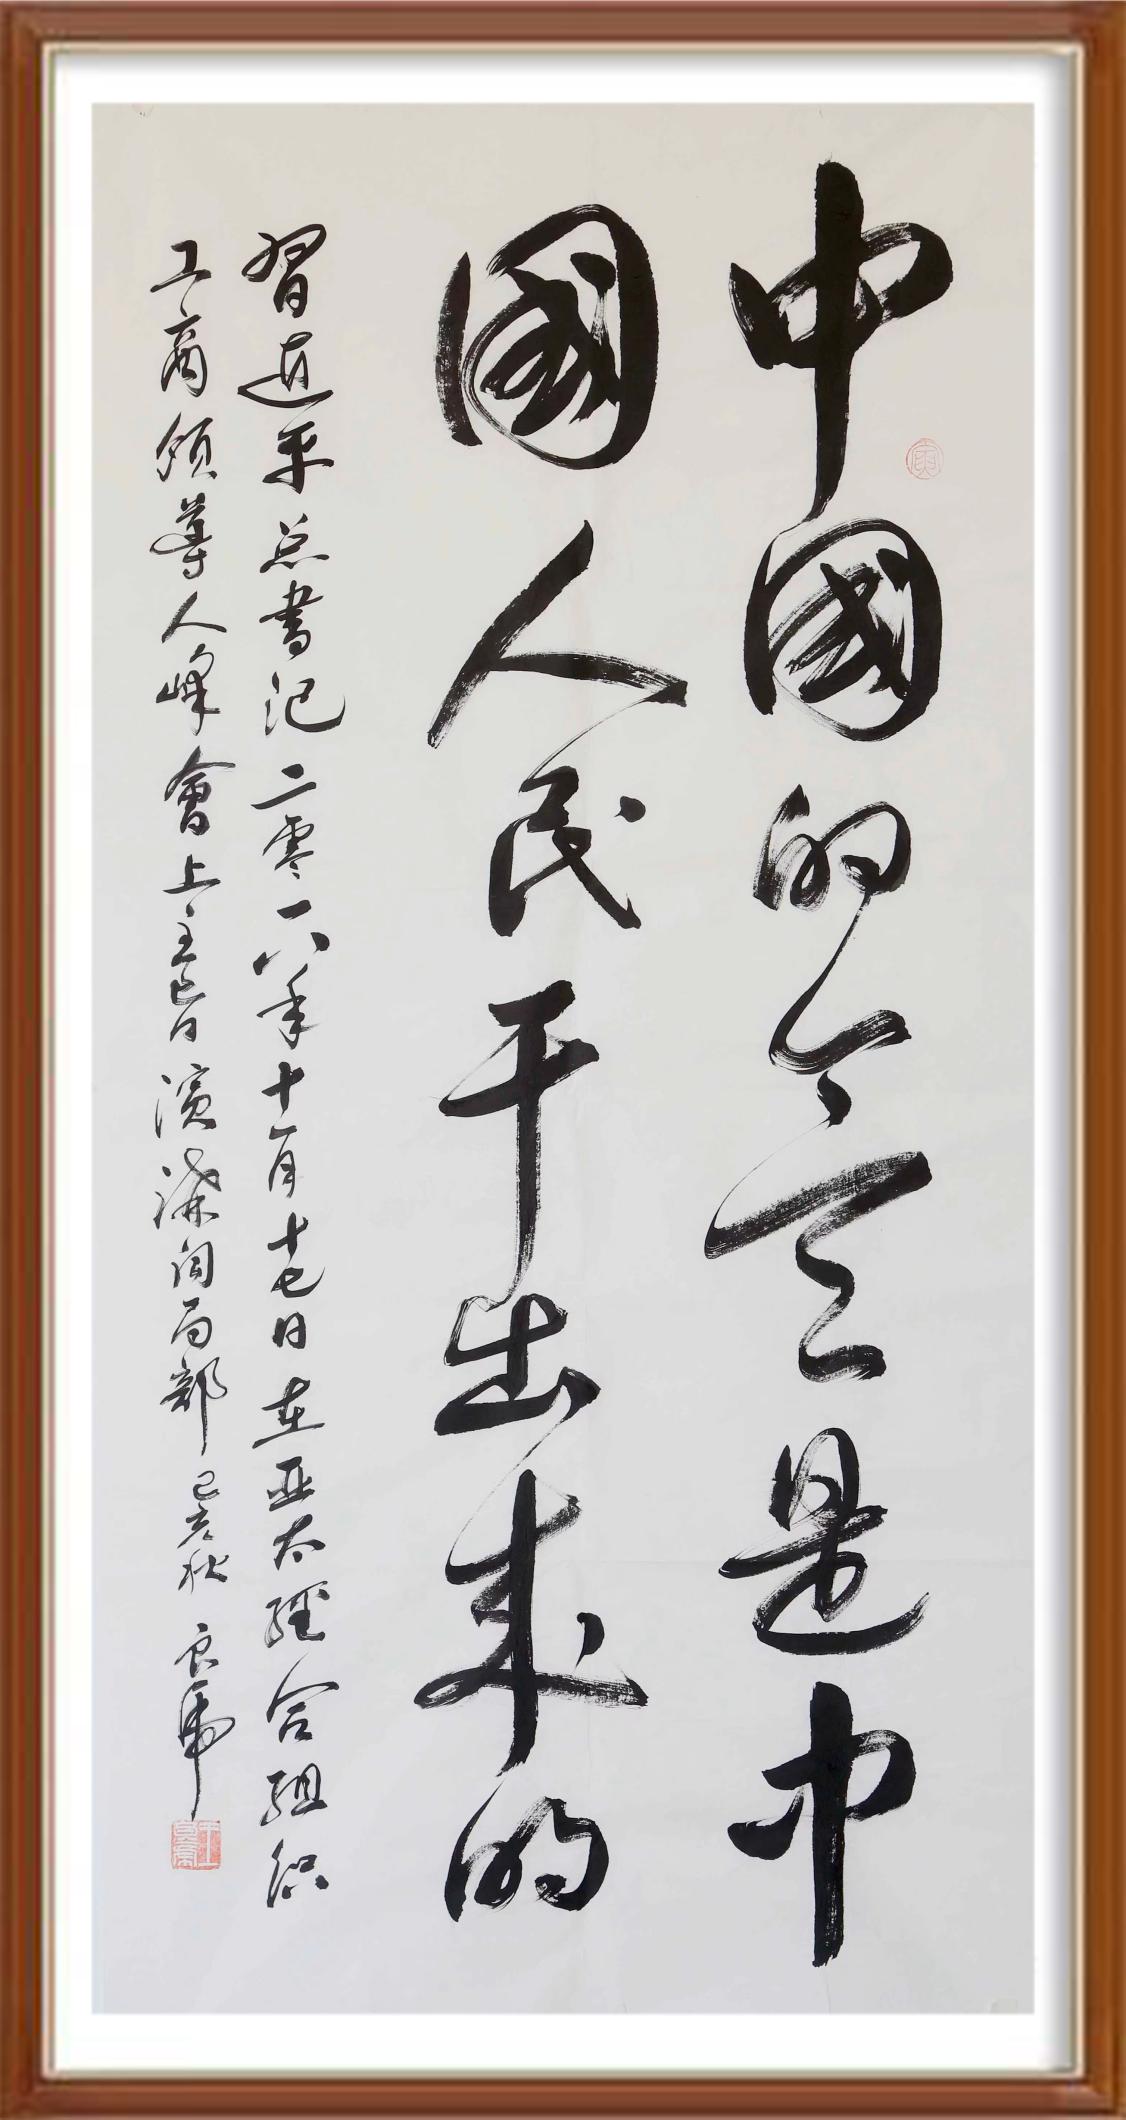 中國的今天是中
國人民干出来的
習近平总書记二零一八年十一月十七日在亚太經合組织
工商領導人峰會上主旨演講词局部 己亥秋 良虎